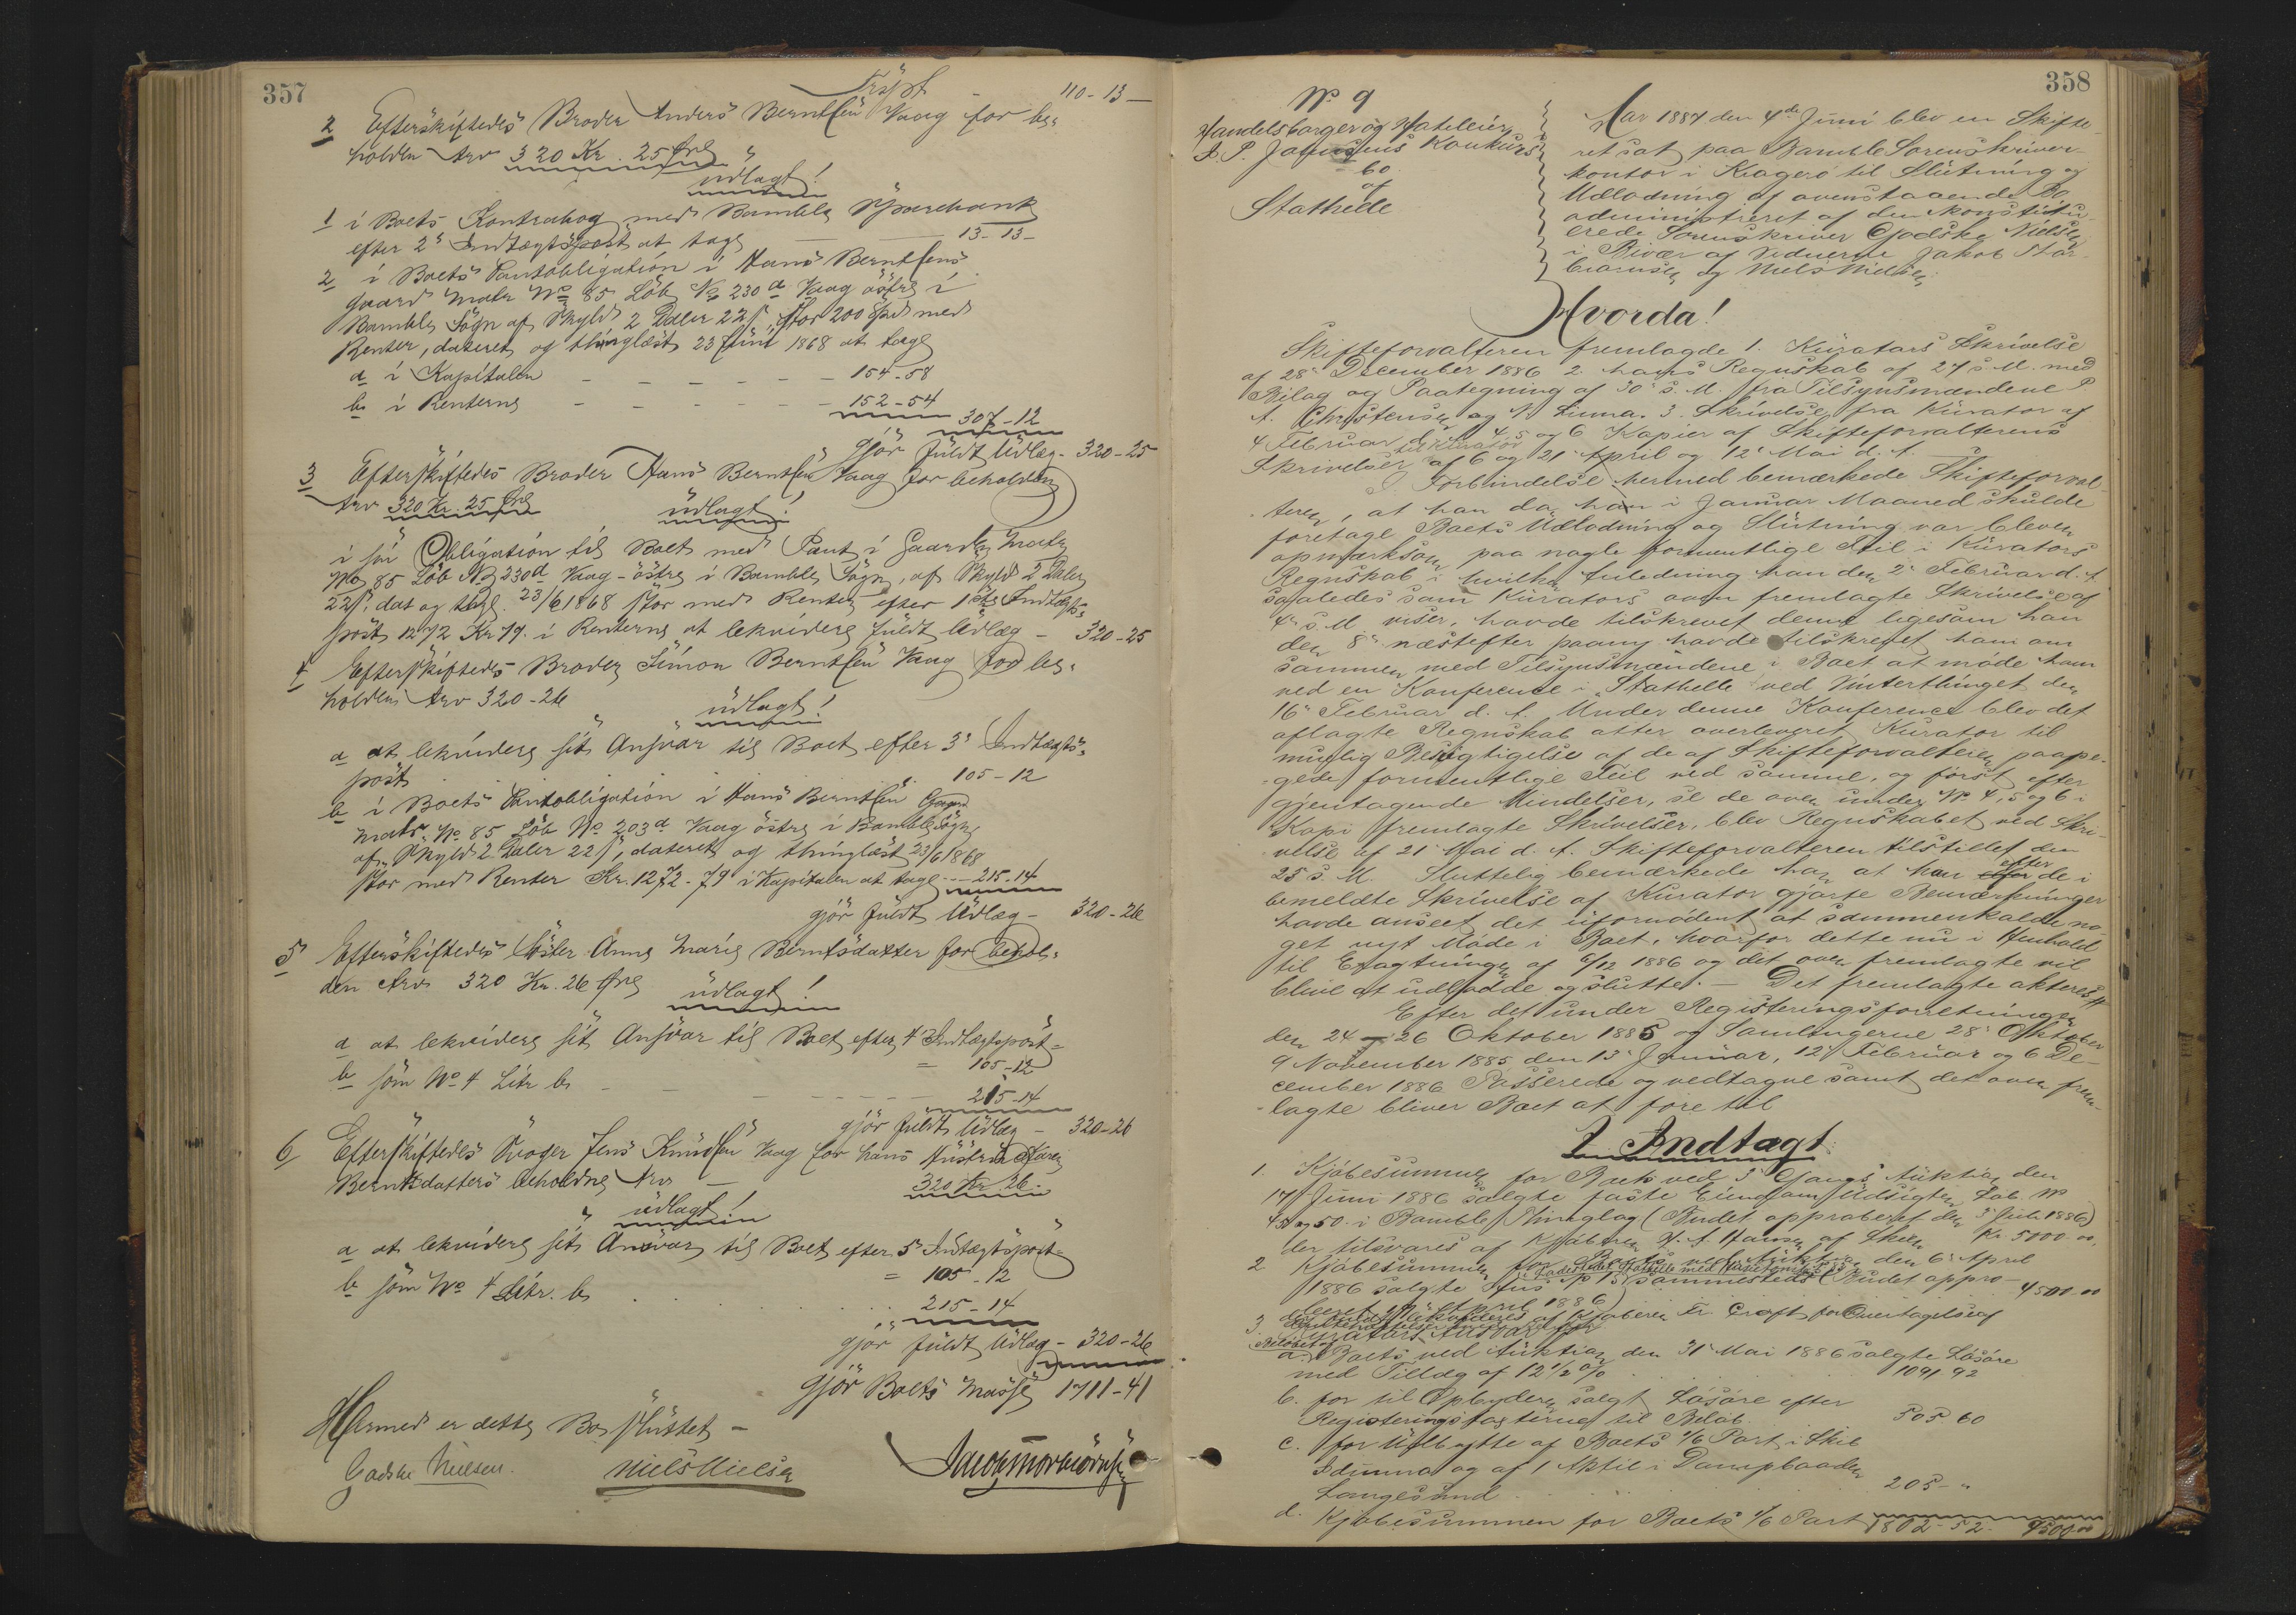 357
Trspt 110-13-
2 Efterskiftedes Broder Anders Berntsen Vaag for be-
holden Arv 320 Kr. 25 Øre
udlagt!
1 i Boets Kontrabog med Bamble Sparebank
efter 2' Indtægtspost at tage 13-13-
2 i Boets Pantobligation i Hans Berntsens
Gaard Matr No 85 Løb No 230a Vaag østre i
Bamble Sogn af Skyld 2 Daler 22 s, stor 200 Spd med
Renter, dateret og thinglæst 23 Juni 1868 at tage
a i Kapitalen - - - - - - 154-58
b i Renterne - - - - - - 152-54
307-12
gjør fuldt Udlæg - 320-25
3 Efterskiftedes Broder Hans Berntsen Vaag for beholden
Arv 320 Kr. 25 Øre
udlagt!
i sin Obligation til Boet med Pant i Gaarden Matr
No 85 Løb No 230d Vaag-østre i Bamble Sogn, af Skyld 2 Daler
22 s, dat og tingl. 23/6 1868 stor med Renter efter 1ste Indtægts-
post 1272 Kr 79. i Renterne at lekvidere fuldt Udlæg - 320-25
4 Efterskiftedes Broder Simon Berntsen Vaag for be-
holden Arv 320-26
udlagt!
a at lekvidere sit Ansvar til Boet efter 3' Indtægts-
post 105-12
b i Boets Pantobligation i Hans Berntsen Gaard
Matr. No 85 Løb No 203d Vaag østre i Bamble Sogn
af Skyld 2 Daler 22 s, dateret og thinglæst 23/6 1868
stor med Renter Kr. 1272-79 i Kapitalen at tage -- 215-14
gjør fuldt Udlæg - 320-26
5 Efterskiftedes Søster Anne Marie Berntsdatter for behol-
den Arv 320 Kr. 26 Øre
udlagt!
a at lekvidere sit Ansvar til Boet efter 4' Indtægtspost -
= 105-12
b som No 4 Litr b - - - - - 215-14
gjør fuldt Udlæg - 320-26
6 Efterskiftedes Svoger Jens Knudsen Vaag for hans Hustru Karen
Berntsdatters beholdne Arv - 320 Kr 26.
udlagt!
a at lekvidere sit Ansvar til Boet efter 5' Indtægtspost -
= 105-12
b som No 4 Litr. b . . . . . 215-14
gjør fuldt Udlæg - 320-26
Gjør Boets Masse 1711-41
Hermed er dette Bo sluttet -
Godske Nielsen. Niels Nielsen
358
No 9
Handelsborger og Hoteleier
J. P. Konkurs
bo
af
Stathelle
Aar 1887 den 4de Juni blev en Skifte-
ret sat paa Bamble Sorenskriver-
kontor i Kragerø til Slutning og
Udlodning af ovenstaaende Bo
administreret af den konstitu-
erede Sorenskriver Godske Nielsen
i Bivær af Vidnerne Jakob Thor-
bjørnsen og Niels Nielsen.
Hvorda!
Skifteforvalteren fremlagde 1. Kurators Skrivelse
af 28' December 1886 2. hans Regnskab af 27' s. M. med
Bilag og Paategning af 30' s. M. fra Tilsynsmændene P
A. Christensen og N. Linna. 3. Skrivelse fra Kurator af
4 Februar d. A. 4, 5 og 6 Kopier af Skifteforvalterens
Skrivelser til Kurator af 6 og 21' April og 12' Mai d. A.
I Forbindelse hermed bemærkede Skifteforval-
teren, at han da han i Januar Maaned skulde
foretage Boets Udlodning og Slutning var bleven
opmærksom paa nogle formentlige Feil i Kurators
Regnskab i hvilken Anledning han den 2' Februar d. A.
saaledes som Kurators oven fremlagte Skrivelse af
4' s. M. viser, havde tilskrevet denne ligesom han
den 8' næstefter paany havde tilskrevet ham om
sammen med Tilsynsmændene i Boet at møde ham
ved en Konference i Stathelle ved Vinterthinget den
16' Februar d. A. Under denne Konference blev det
aflagte Regnskab atter overleveret Kurator til
mulig Berigtigelse af de af Skifteforvalteren paape-
gede formentlige Feil ved samme, og først efter
gjentagende Mindelser, se de oven under No 4, 5 og 6 i
Kopi fremlagte Skrivelser, blev Regnskabet ved Skri-
velse af 21' Mai d. A. Skifteforvalteren tilstillet den
25' s. M. Sluttelig bemærkede han at han efter de i
bemeldte Skrivelse af Kurator gjorte Bemærkninger
havde anseet det ufornødent at sammenkalde no-
get nyt Møde i Boet, hvorfor dette nu i Henhold
til Eragtningen af 6/12 1886 og det oven fremlagte vil
blive at udlodde og slutte. - Det fremlagte akteres.
Efter det under Registreringsforretningen
den 24-26 Oktober 1885 og Samlingerne 28' Oktober
9 November 1885 den 13' Januar, 12' Februar og 6 De-
cember 1886 Passerede og vedtagne samt det oven frem-
lagte bliver Boet at føre til
I Indtægt.
1. Kjøbesummen for Boets ved 3' Gangs Auktion den
17' Juni 1886 solgte faste Eiendom Udsigten Løb No
49 og 50 i Bamble Thinglag (Budet approberet den 3' Juli 1886)
der tilsvares af Kjøberen H. A. Hansen af Skien Kr. 5000.00.
2 Kjøbesummen for Boets ved Auktion den 6' April
1886 solgte Hus No 13 sammesteds (Budet appro-
beret April 1886) 4500-00
af Kjøberen Fr. Croft for Overtagelse af
3. Kurators Ansvar for
Beløbet af
a. Boets ved Auktion den 31' Mai 1886 solgte Løsøre
med Tillæg af 12 1/2 % . . . . 1091 92
b. for til Opbydere solgt Løsøre efter
Registreringstaxterne til Beløb. 505 60
c. for Udbytte af Boets 1/6 Part i Skib
Idunna og af 1 Aktie i Dampbaaden
Langesund . . . . 205-"
d. Kjøbesummen for Boets 1/6 Part
1802-52. 9500.00